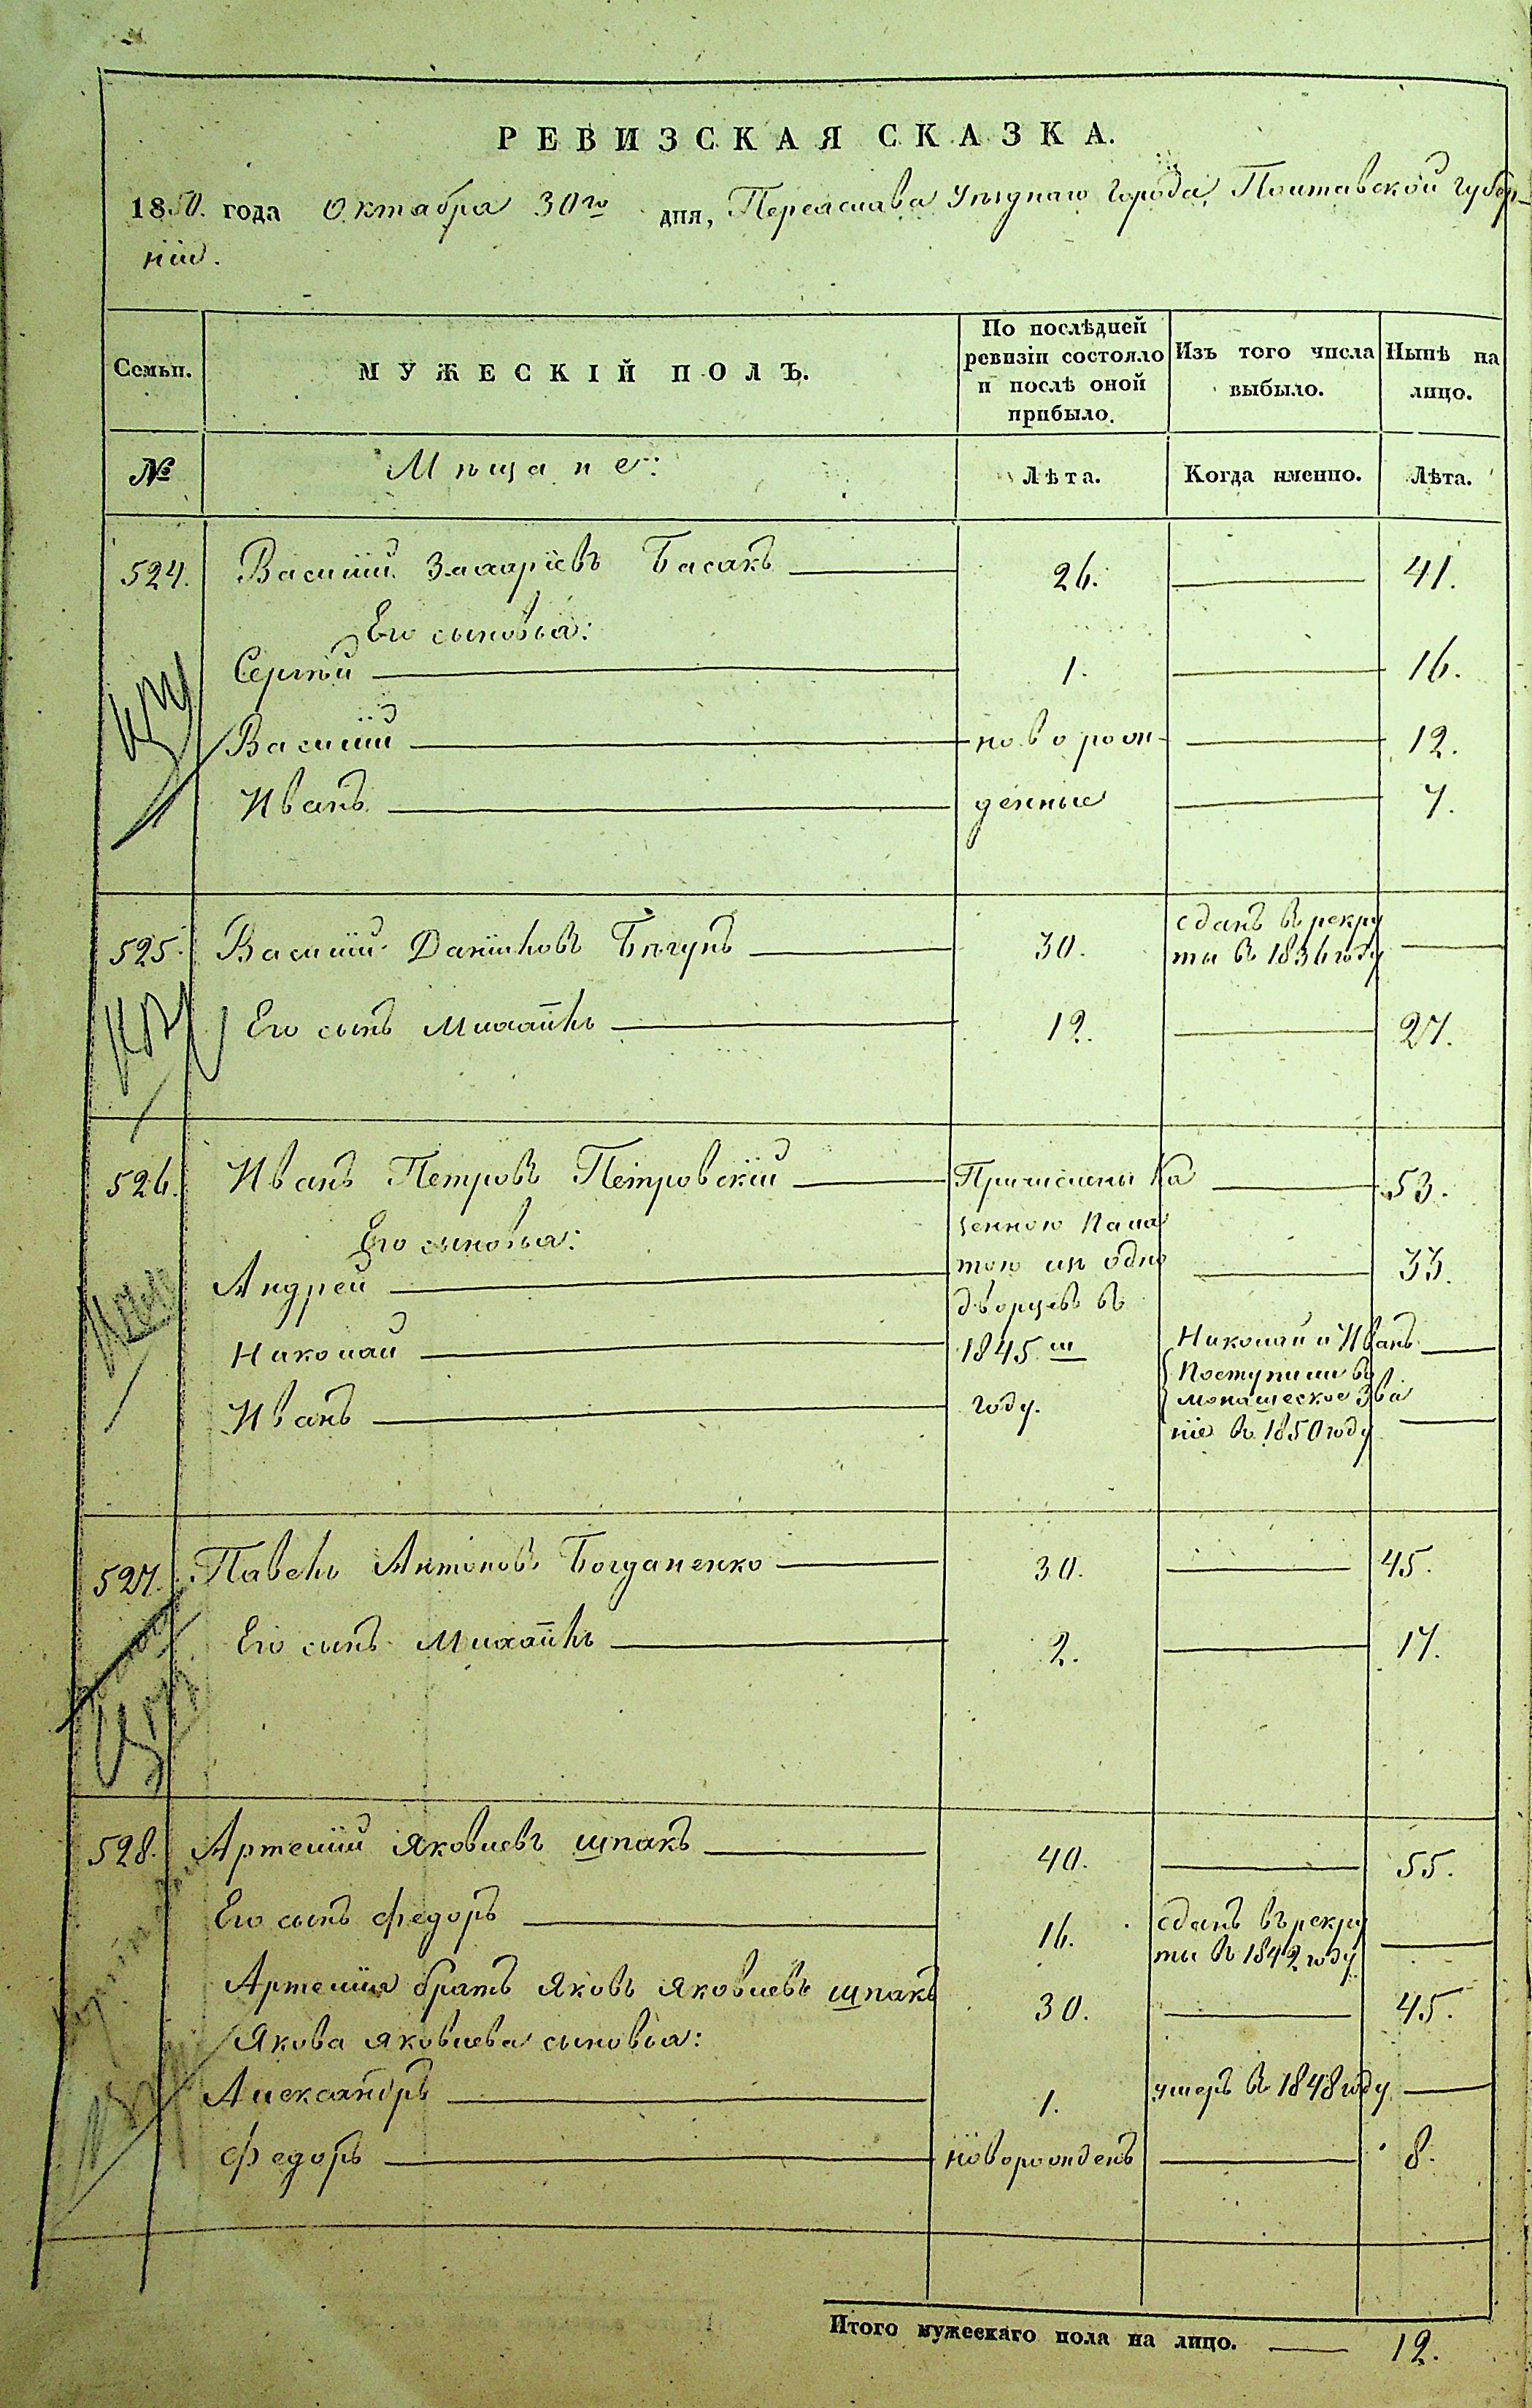 РЕВИЗСКАЯ СКАЗКА.
1850. года Октября 30го дня, Переяслава Уѣзднаго Города, Полтавской Губер-
ніи.
Семьи. МУЖЕСКІЙ ПОЛЪ. По послѣдней ревизіи состояло и послѣ оной прибыло. Изъ того числа выбыло. Нынѣ на лицо.
№ Мѣщане: Лѣта. Когда именно. Лѣта.
524. Василій Захаріевъ Басакъ 26. 41.
Его сыновья:
Сергѣй 1. 16.
Василій новорож- 12.
Иванъ денные 7.
525. Василій Даніиловъ Бѣгунъ 30. сданъ въ рекру
ты въ 1836 году
Его сынъ Михаилъ 12. 27.
526. Иванъ Петровъ Петровскій Причислены Ка 53.
Его сыновья: зенною Пала
Андрей тою изъ одно 33.
дворцевъ въ
Николай 1845м Николай и Иванъ
Поступили въ
Иванъ году. монашеское Зва
ніе въ 1850 году
527. Павелъ Антоновъ Богданенко 30. 45.
Его сынъ Михаилъ 2. 17.
528. Артемій Яковлевъ Шпакъ 40. 55.
Его сынъ Федоръ 16. сданъ въ рекру
ты въ 1842 году
Артемія братъ Яковъ Яковлевъ Шпакъ 30. 45.
Якова Яковлева сыновья:
Александръ 1. умеръ въ 1848 году
Федоръ новорожденъ 8.
Итого мужескаго пола на лицо. 12.